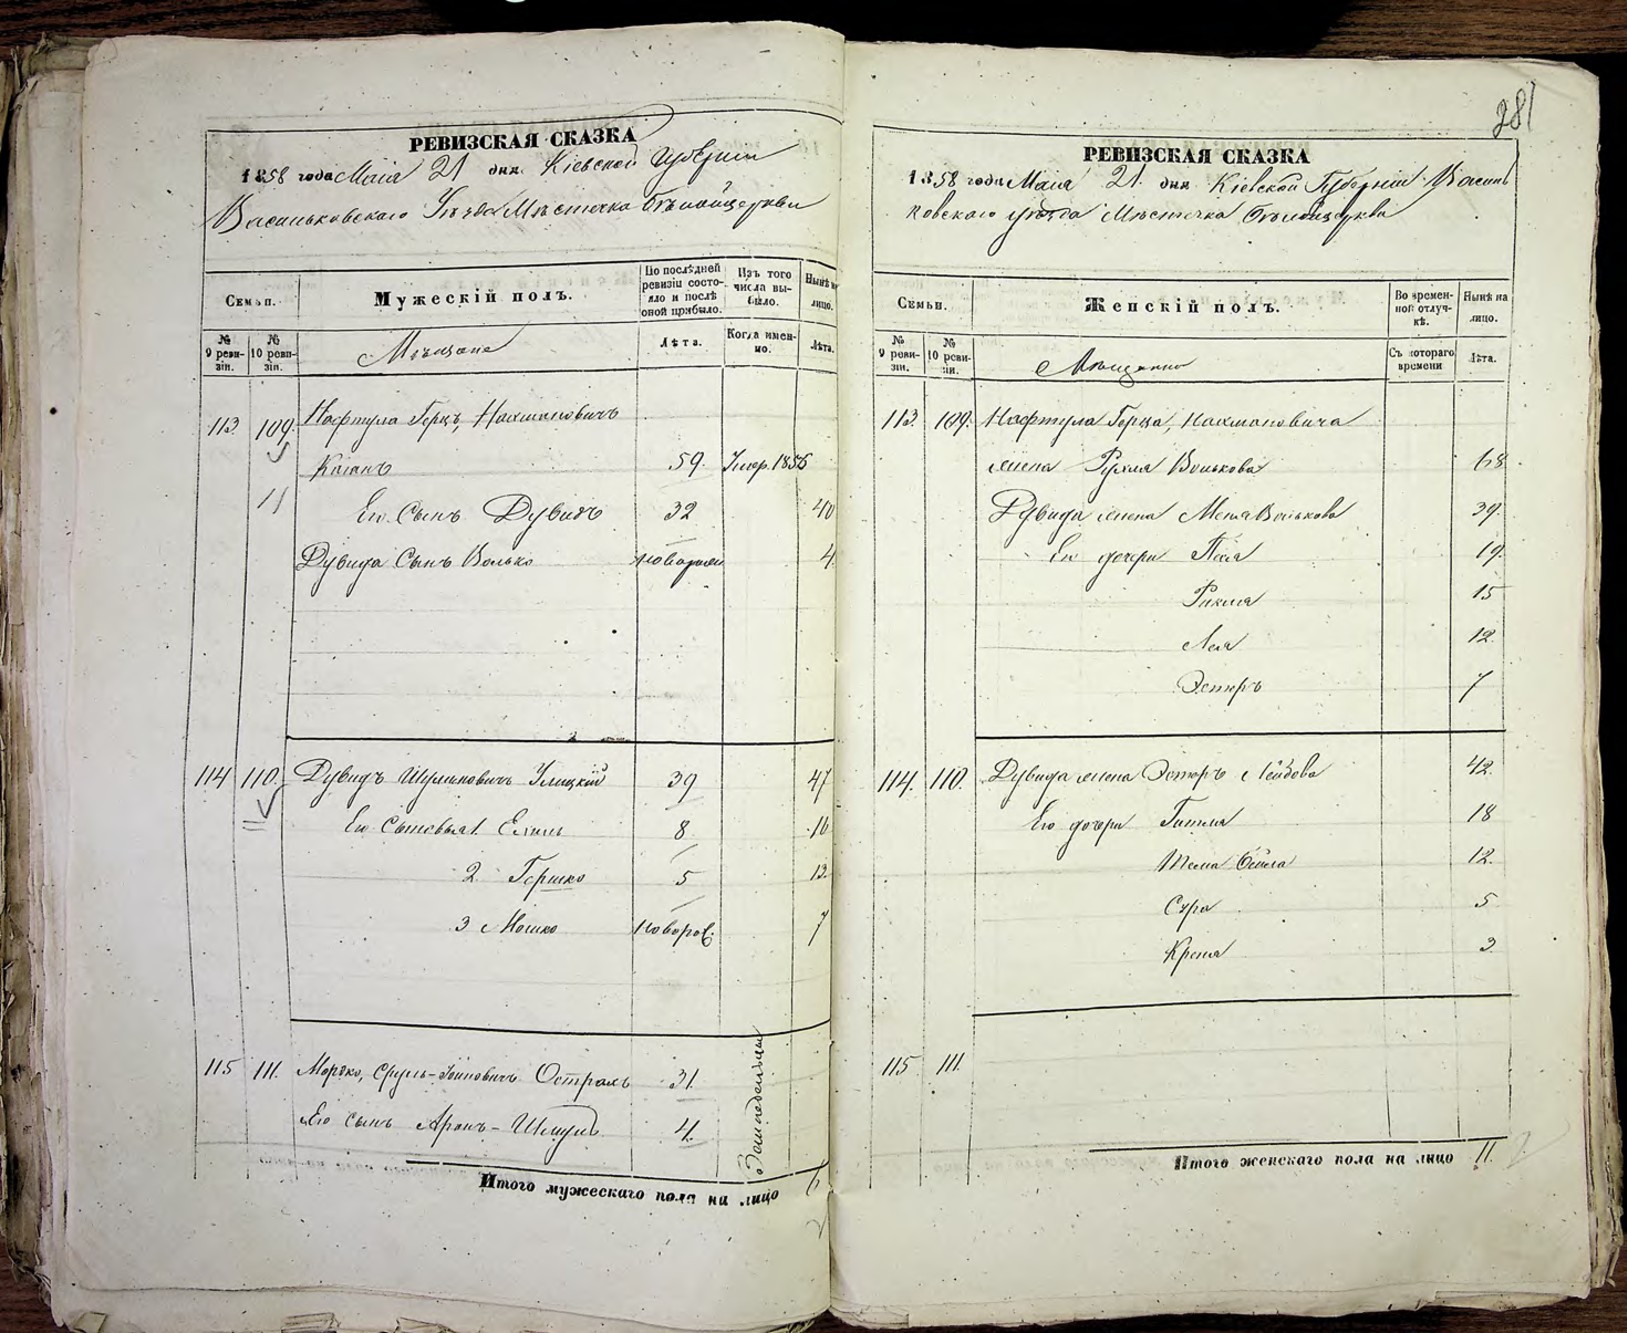 281
РЕВИЗСКАЯ СКАЗКА
1858 года Маія 21 дня Кіевской Губерніи
Васильковскаго Уѣзда Мѣстечка Бѣлойцеркви
Семьи.
Мужескій полъ.
По послѣдней ревизіи состояло и послѣ оной прибыло.
Изъ того числа выбыло.
Нынѣ на лицо.
№ 9 ревизіи.
№ 10 ревизіи.
Мѣщане
Лѣта.
Когда именно.
Лѣта.
113 109. Нафтула Герцъ, Нахмановичъ
Каганъ 59. Умер. 1856
11 Его Сынъ Дувидъ 32 40
Дувида Сынъ Волько новорожд 4
114 110. Дувидъ Шулимовичъ Улицкій 39 47
Его Сыновья 1. 8 16
2. Гершко 5 13
3 Мошко новорож. 7
115 111. Мордко, Сруль-Іойновичъ Острахъ 31
Его сынъ Аронъ-Шмуль 4.
Итого мужескаго пола на лицо 6
РЕВИЗСКАЯ СКАЗКА
1858 года Маія 21. дня Кіевской Губерніи Василь
ковскаго уѣзда Мѣстечка Бѣлойцеркви
Семьи.
Женскій полъ.
Во временной отлучкѣ.
Нынѣ на лицо.
№ 9 ревизіи.
№ 10 ревизіи.
Мѣщанки
Съ котораго времени
Лѣта.
113 109. Нафтула Герца, Нахмановича
жена Рухля Волькова 68
Дувида жена Меня Волькова 39
Его дочери 19.
Рикля 15
Лея 12.
Эстеръ 7
114. 110. Дувида жена Эстеръ Лейбова 42.
Его дочери Гитля 18
Бейла 12.
Сура 5
Креня 3
115 111.
Итого женскаго пола на лицо 11.